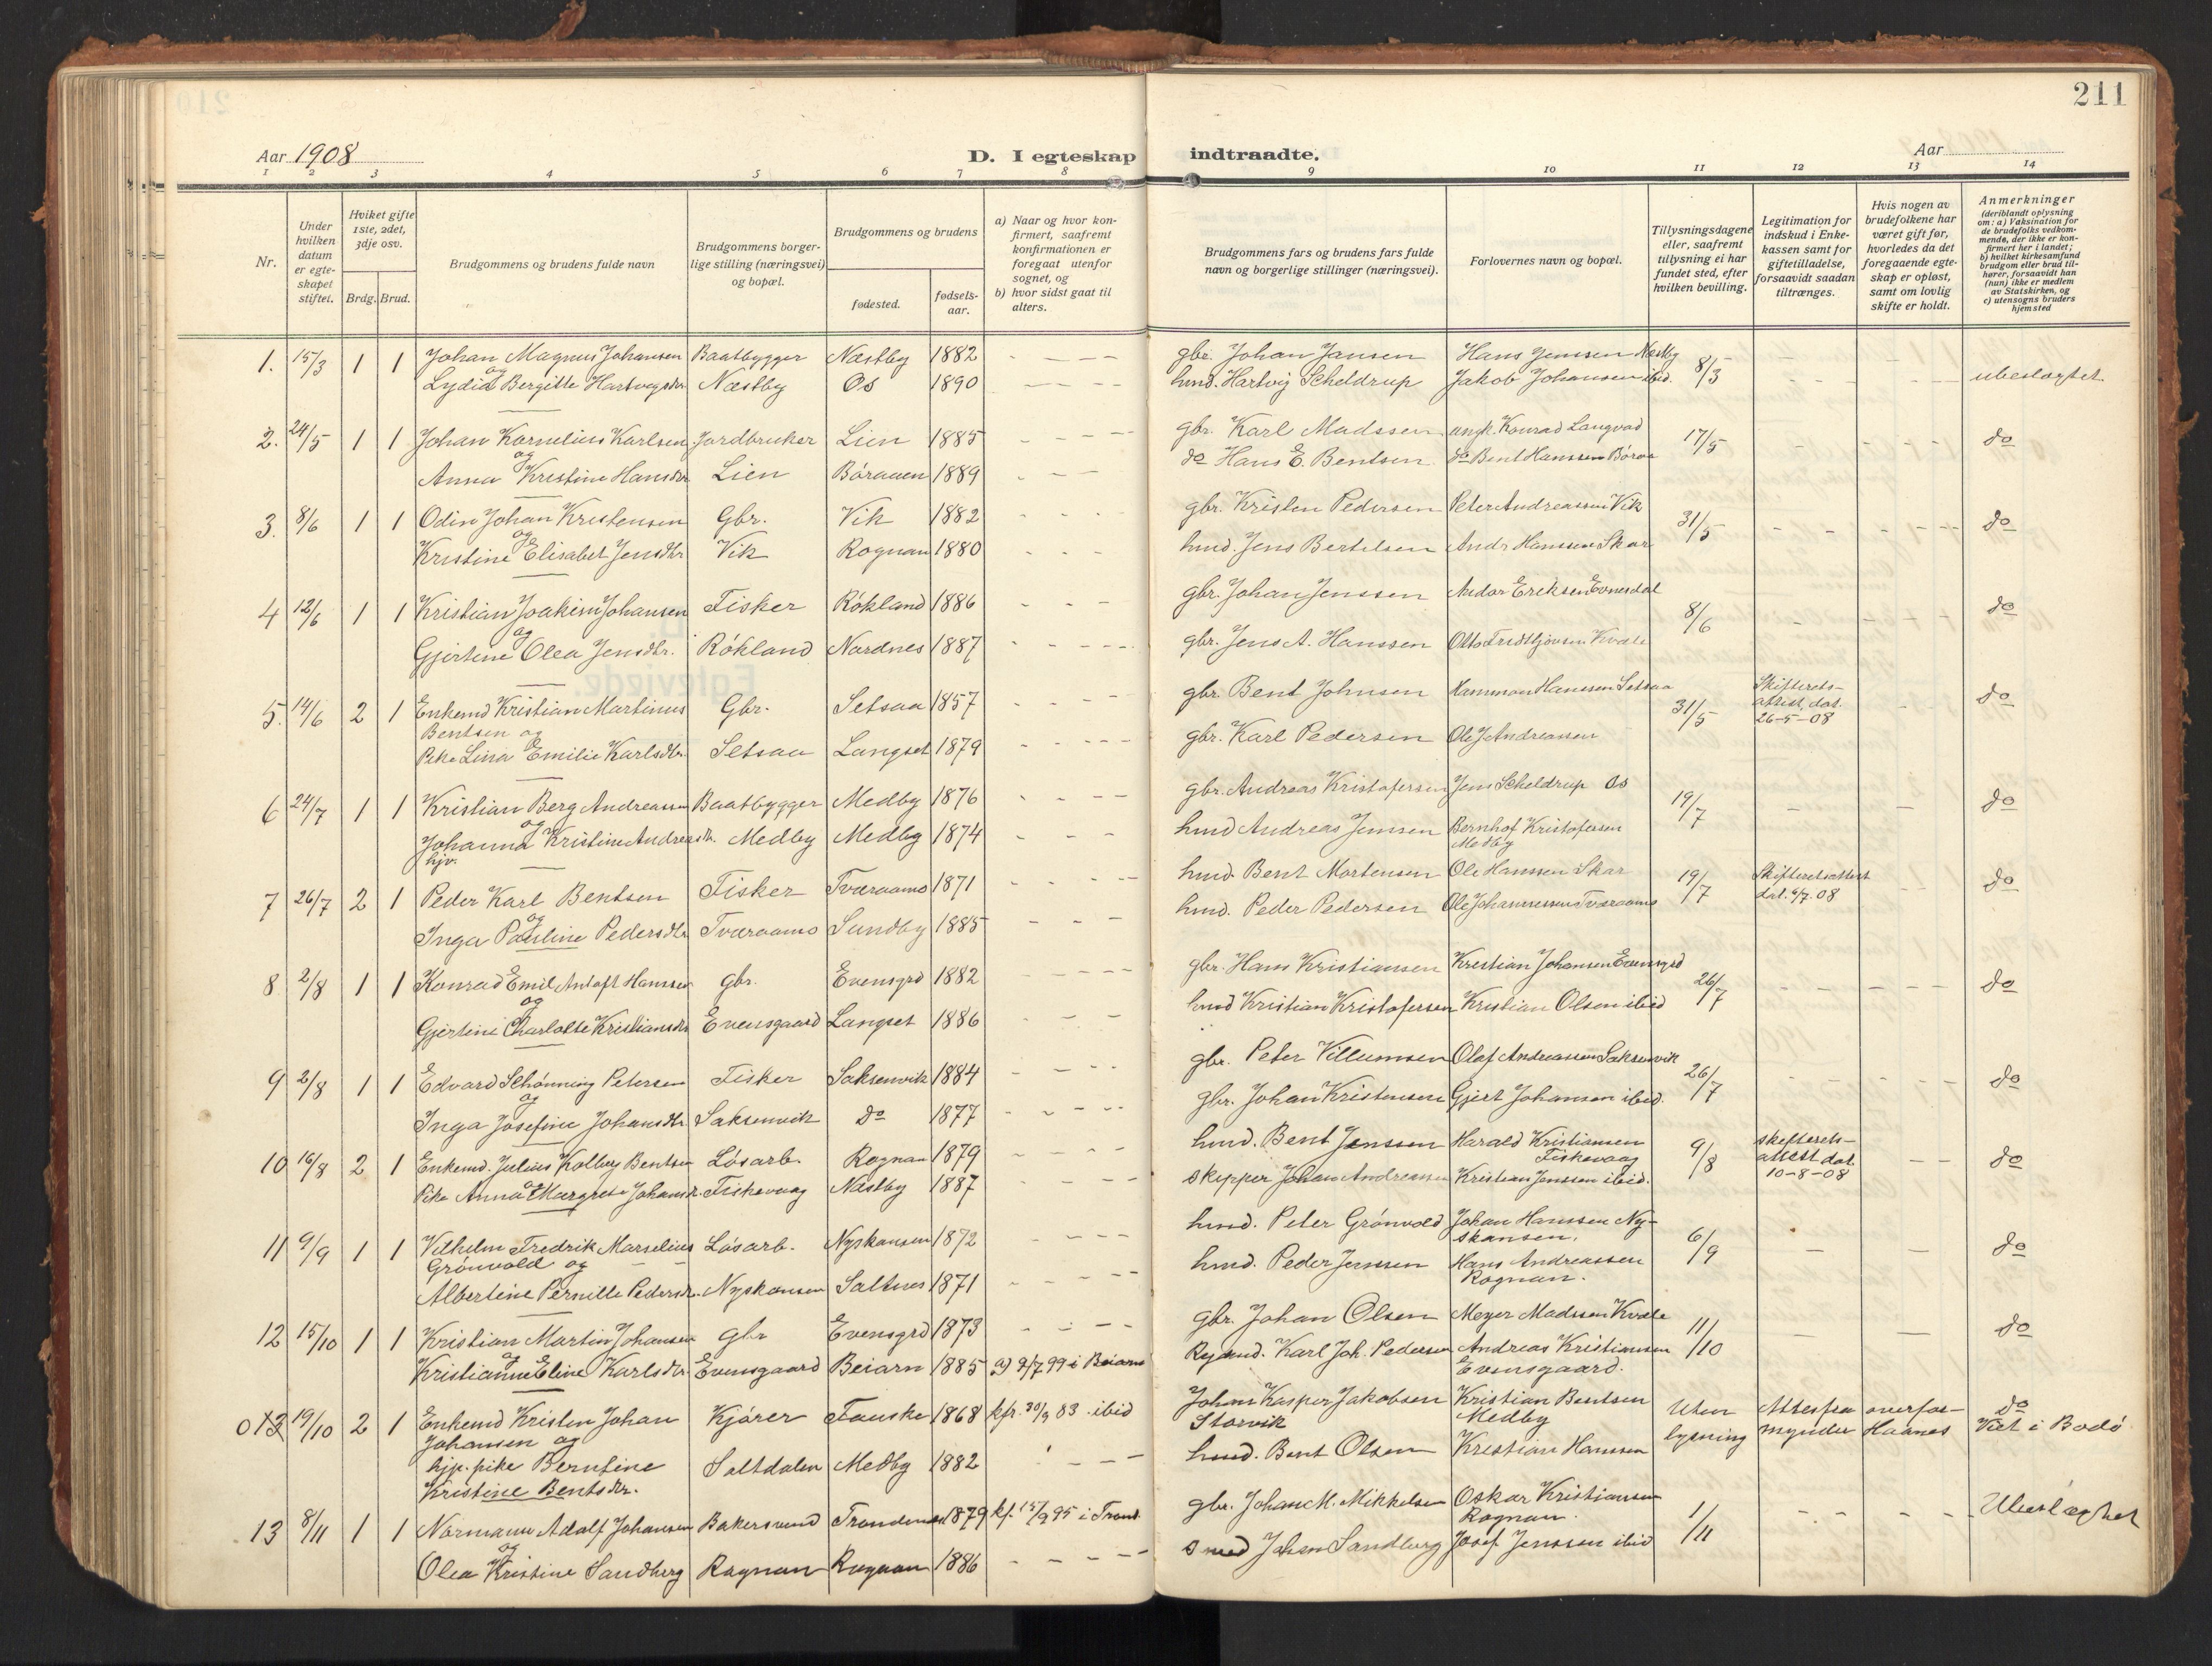 211
Aar 1908
D. I egteskap indtraadte.
Aar
1 2 3 4 5 6 7 8 9 10 11 12 13 14
Nr.
Under hvilken datum er egteskapet stiftet.
Hvilket gifte 1ste, 2det, 3dje osv.
Brdg. Brud.
Brudgommens og brudens fulde navn
Brudgommens borgerlige stilling (næringsvei) og bopæl.
Brudgommens og brudens
fødested.
fødselsaar.
a) Naar og hvor konfirmert, saafremt konfirmationen er foregaat utenfor sognet, og
b) hvor sidst gaat til alters.
Brudgommens fars og brudens fars fulde navn og borgerlige stillinger (næringsvei).
Forlovernes navn og bopæl.
Tillysningsdagene eller, saafremt tillysning ei har fundet sted, efter hvilken bevilling.
Legitimation for indskud i Enkekassen samt for giftetilladelse, forsaavidt saadan tiltrænges.
Hvis nogen av brudefolkene har været gift før, hvorledes da det foregaaende egteskap er opløst, samt om lovlig skifte er holdt.
Anmerkninger
(deriblandt oplysning om: a) Vaksination for de brudefolks vedkommende, der ikke er konfirmert her i landet; b) hvilket kirkesamfund brudgom eller brud tilhører, forsaavidt han (hun) ikke er medlem av Statskirken, og c) utensogns bruders hjemsted
1. 15/3 1 1 Johan Magnus Johansen Baatbygger Næstby 1882 gbr. Johan Jansen Hans Jensen Næstby 8/3
og Lydia Bergitte Hartvigsdtr Næstby Os 1890 hmd. Hartvig Scheldrup Jakob Johansen ibid. ubeslægtet
2. 24/5 1 1 Johan Kornelius Karlsen Jordbruker Lien 1885 gbr. Karl Madssen Konrad Langvad 17/5 do
og Anna Kristine Hansdtr Lien Böraaen 1889 do Hans E. Bentsen do Bent Hanssen
3. 8/6 1 1 Odin Johan Kristensen Gbr. Vik 1882 gbr. Kristen Pedersen Peter Andreassen Vik 31/5 do
og Kristine Elisabet Jensdtr Vik Rognan 1880 hmd. Jens Bertelsen Andr Hanssen Skar
4 12/6 1 1 Kristian Joakim Johansen Fisker Rökland 1886 gbr. Johan Jenssen Andor Eriksen Evnesdal 8/6 do
og Gjertine Olea Jensdtr. Rökland Nordnes 1887 gbr. Jens A. Hanssen Otto Fridtjovsen Kvæle
5. 14/6 2 1 Enkemd Kristian Martinus Gbr. Setsaa 1857 gbr. Bent Johnsen Hanssen Setsaa 31/5 Skifterets- do
Bentsen og attest, dat.
Pike Lina Emilie Karlsdtr. Setsaa Langset 1879 gbr. Karl Pedersen Ole J Andreassen 26-5-08
6 24/7 1 1 Kristian Berg Andreassen Baatbygger Medby 1876 gbr. Andreas Kristofersen Jens Scheldrup Os 19/7 do
og Johanna Kristine Andreasdtr. Medby Medby 1874 hmd Andreas Jensen Bernhof Kristofersen Medby
hjv.
7 26/7 2 1 Peder Karl Bentsen Fisker Tværaamo 1871 hmd. Bent Mortensen Ole Hanssen Skar 19/7 Skifteretsattest do
og Inga Pauline Pedersdtr Tværaamo Sundby 1885 hmd. Peder Pedersen Ole Johannessen Tværaamo dat. 6/7.08
8 2/8 1 1 Konrad Emil Antoft Hanssen gbr. Evensgrd 1882 gbr. Hans Kristiansen Kristian Johansen Evensgrd 26/7 do
og Gjertine Charlotte Kristiansdtr Evensgaard Langset 1886 hmd Kristian Kristofersen Kristian Olsen ibid
9 2/8 1 1 Edvard Schönning Petersen Fisker Saksenvik 1884 gbr. Peter Villumsen Olaf Andreassen Saksenvik 26/7 do
og Inga Josefine Johansdtr Saksenvik do 1877 gbr. Johan Kristensen Gjert Johansen ibid.
10 16/8 2 1 Enkemd. Julius Kolberg Bentsen Lösarb. Rognan 1879 hmd. Bent Jenssen Harald Kristiansen Fiskevaag 9/8 skifterets- do
og Pike Anna Margrete Johansdtr. Fiskevaag Næstby 1887 skipper Johan Andreassen Kristian Jenssen ibid. attest dat. 10-8-08
11 9/9 1 1 Vilhelm Fredrik Marselius Lösarb. Nyskansen 1872 hmd. Peter Grönvold Johan Hanssen Ny- 6/9 do
Grönvold og skansen.
Albertine Pernille Pedersdtr. Nyskansen Saltnes 1871 hmd. Peder Jenssen Hans Andreassen Rognan.
12 15/10 1 1 Kristian Martin Johansen gbr Evensgrd 1873 gbr. Johan Olsen Meyer Madssen Kvæle 11/10 do
og Kristianne Eline Karlsdtr. Evensgaard Beiarn 1885 a) 9/7 99 i Beiarn Karl Joh. Pedersen Andreas Kristiansen Evensgaard.
013 19/10 2 1 Enkemd Kristen Johan Kjörer Fauske 1868 kfr. 30/9 83 ibid Johan Kasper Jakobsen Kristian Bentsen Uten Attest fra overfor- do
Johansen og Storvik Medby lysning mynder Haanes Viet i Bodö
hjp. pike Berntine Saltdalen Medby 1882 hmd. Bent Olsen Kristian Hanssen
Kristine Bentsdtr.
13 8/11 1 1 Normann Adolf Johansen Bakersvend Trondenes 1879 kf. 15/9 95 i Trond. gbr. Johan M. Mikkelsen Oskar Kristiansen Rognan. 1/11 Ubeslægtet
og Olea Kristine Sandberg Rognan Rognan 1886 smed Johan Sandberg Josef Jenssen ibid